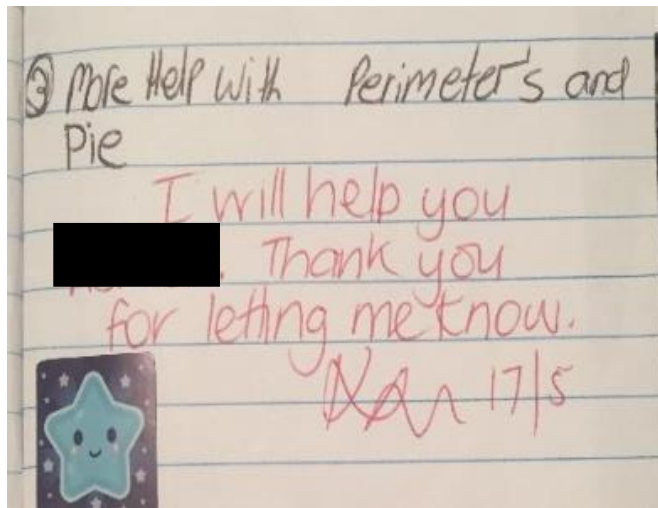 ③ More Help With Perimeter's and
Pie
I will help you
. Thank you
for letting me know.
17/5